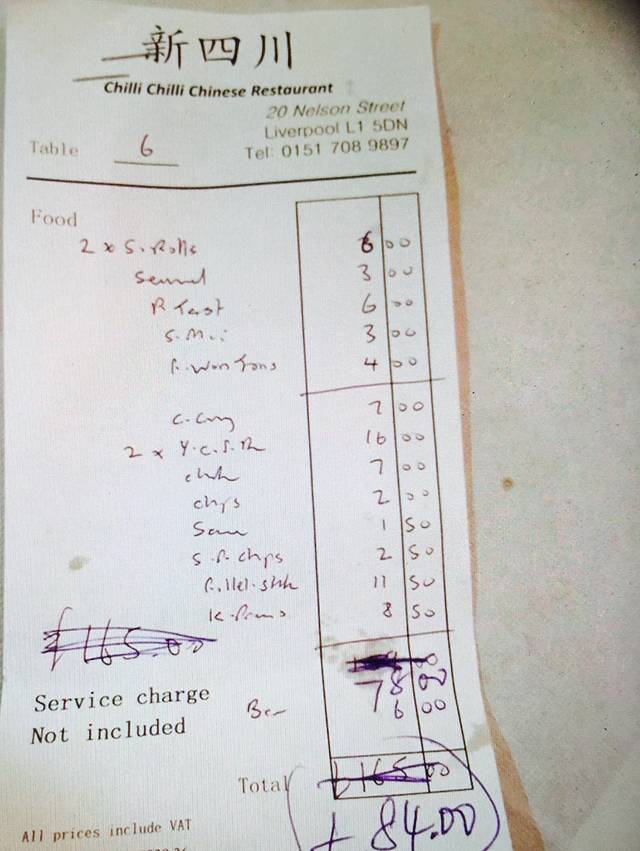 新四川
Chilli Chilli Chinese Restaurant
20 Nelson Street
Liverpool L1 5DN
Table 6 Tel: 0151 708 9897
Food
2 x S. Rolls 6 00
3 00
R Tast 6 00
S. 3 00
Won Tons 4 00
C. 7 00
2 x Y.C.S.R 16 00
7 00
chps 2 00
1 50
S.P. chps 2 50
11 50
K. 8 50
£165.00
78 00
Service charge
6 00
Not included
Total £165 00
£84.00
All prices include VAT